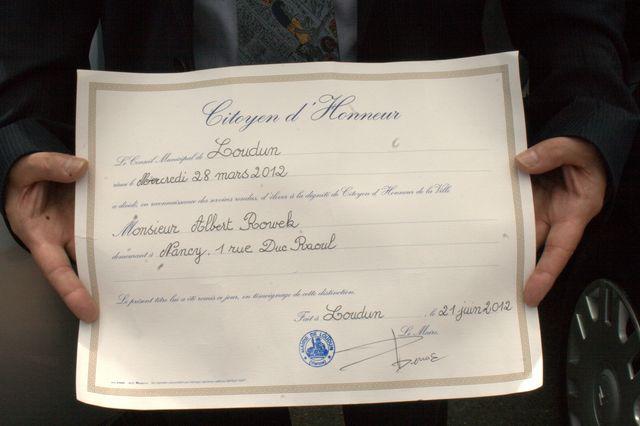 Citoyen d'Honneur
Le Conseil Municipal de Loudun
réuni le Mercredi 28 mars 2012
a décidé, en reconnaissance des services rendus, d'élever à la dignité de Citoyen d'Honneur de la Ville
Monsieur Albert Rowek
demeurant à Nancy. 1 rue Duc Raoul
Le présent titre lui a été remis ce jour, en témoignage de cette distinction.
Fait à Loudun, le 21 juin 2012
Le Maire,
MAIRIE DE LOUDUN